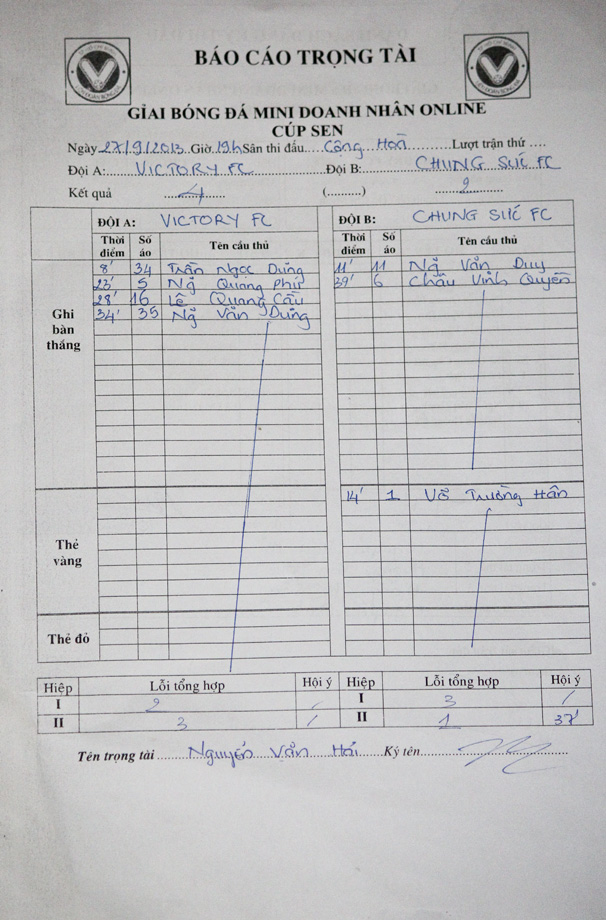 BÁO CÁO TRỌNG TÀI
GIẢI BÓNG ĐÁ MINI DOANH NHÂN ONLINE
CÚP SEN
Ngày 27/9/2013 Giờ 19h Sân thi đấu Cộng Hoà Lượt trận thứ ....
Đội A: VICTORY FC Đội B: CHUNG SỨC FC
Kết quả 4 (..........) 2
ĐỘI A: VICTORY FC ĐỘI B: CHUNG SỨC FC
Thời điểm Số áo Tên cầu thủ Thời điểm Số áo Tên cầu thủ
Ghi bàn thắng
8' 34 Trần Ngọc Dũng 11' 11 Ng Văn Duy
23' 5 Ng Quang Phú 39' 6 Châu Vĩnh Quyền
28' 16 Lê Quang Cầu
34' 35 Ng Văn Dũng
Thẻ vàng
14' 1 Võ Trường Hân
Thẻ đỏ
Hiệp Lỗi tổng hợp Hội ý Hiệp Lỗi tổng hợp Hội ý
I 2 / I 3 /
II 3 / II 1 37'
Tên trọng tài Nguyễn Văn Hải Ký tên